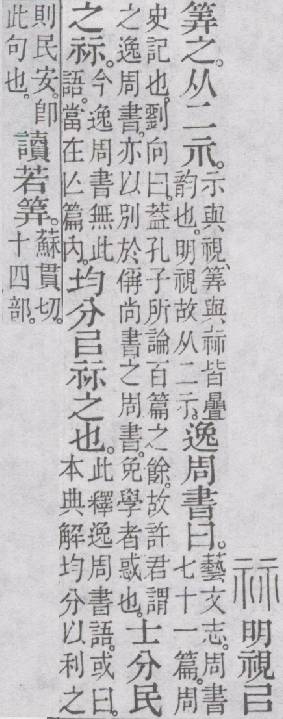 祘 明視㠯
筭之。从二示。示與視、筭與祘皆疊韵也。明視故从二示。逸周書曰。藝文志。周書七十一篇。周
史記也。劉向曰。葢孔子所論百篇之餘。故許君謂之逸周書。亦以別於偁尚書之周書。免學者惑也。士分民
之祘。今逸周書無此語。當在亾篇內。均分㠯祘之也。此釋逸周書語。或曰。本典解均分以利之
則民安。卽此句也。讀若筭。蘇貫切。十四部。